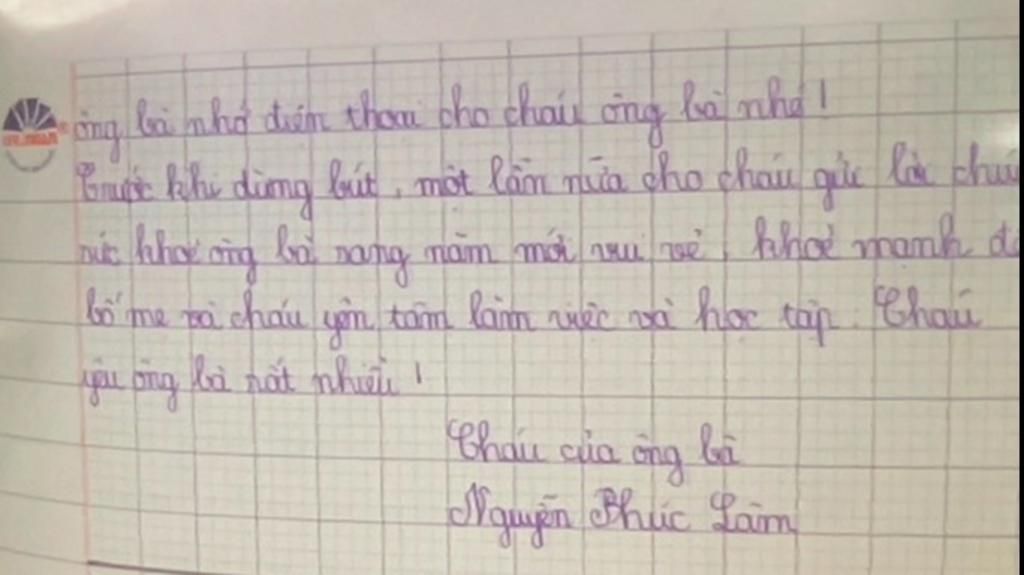 ông bà nhớ điện thoại cho cháu ông bà nhé!
Trước khi dừng bút, một lần nữa cho cháu gửi lời chúc
sức khoẻ ông bà sang năm mới vui vẻ, khoẻ mạnh để
bố mẹ và cháu yên tâm làm việc và học tập. Cháu
yêu ông bà rất nhiều!
Cháu của ông bà
Nguyễn Phúc Lâm